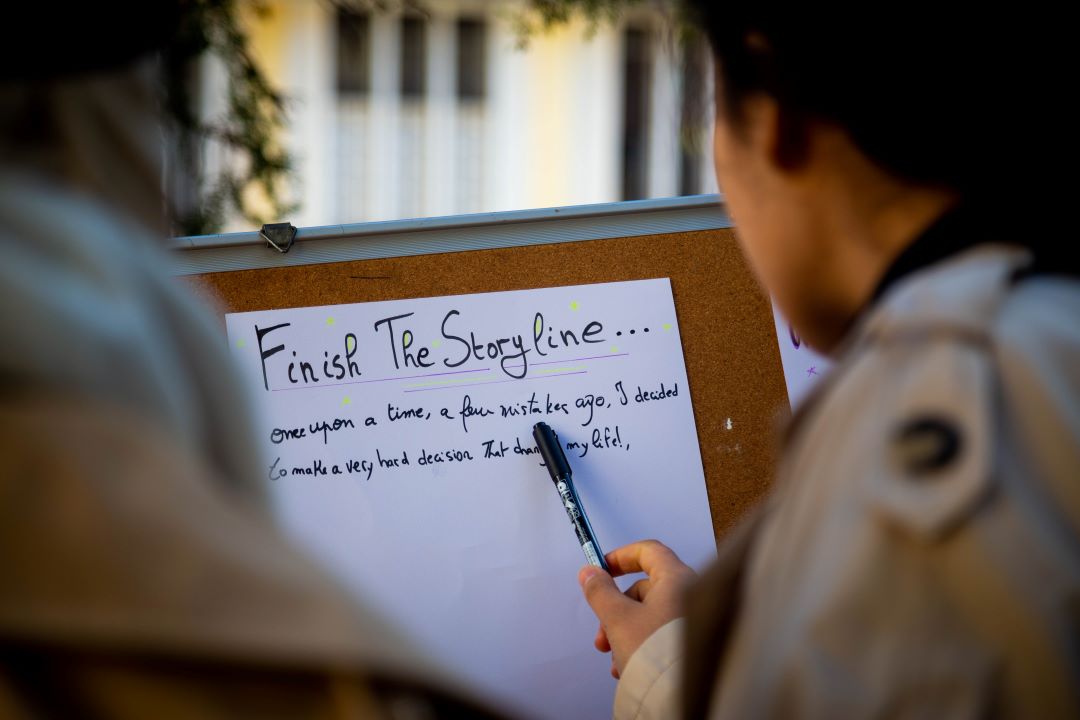 Finish The Storyline...
once upon a time, a few mistakes ago, I decided
to make a very hard decision That my life!,